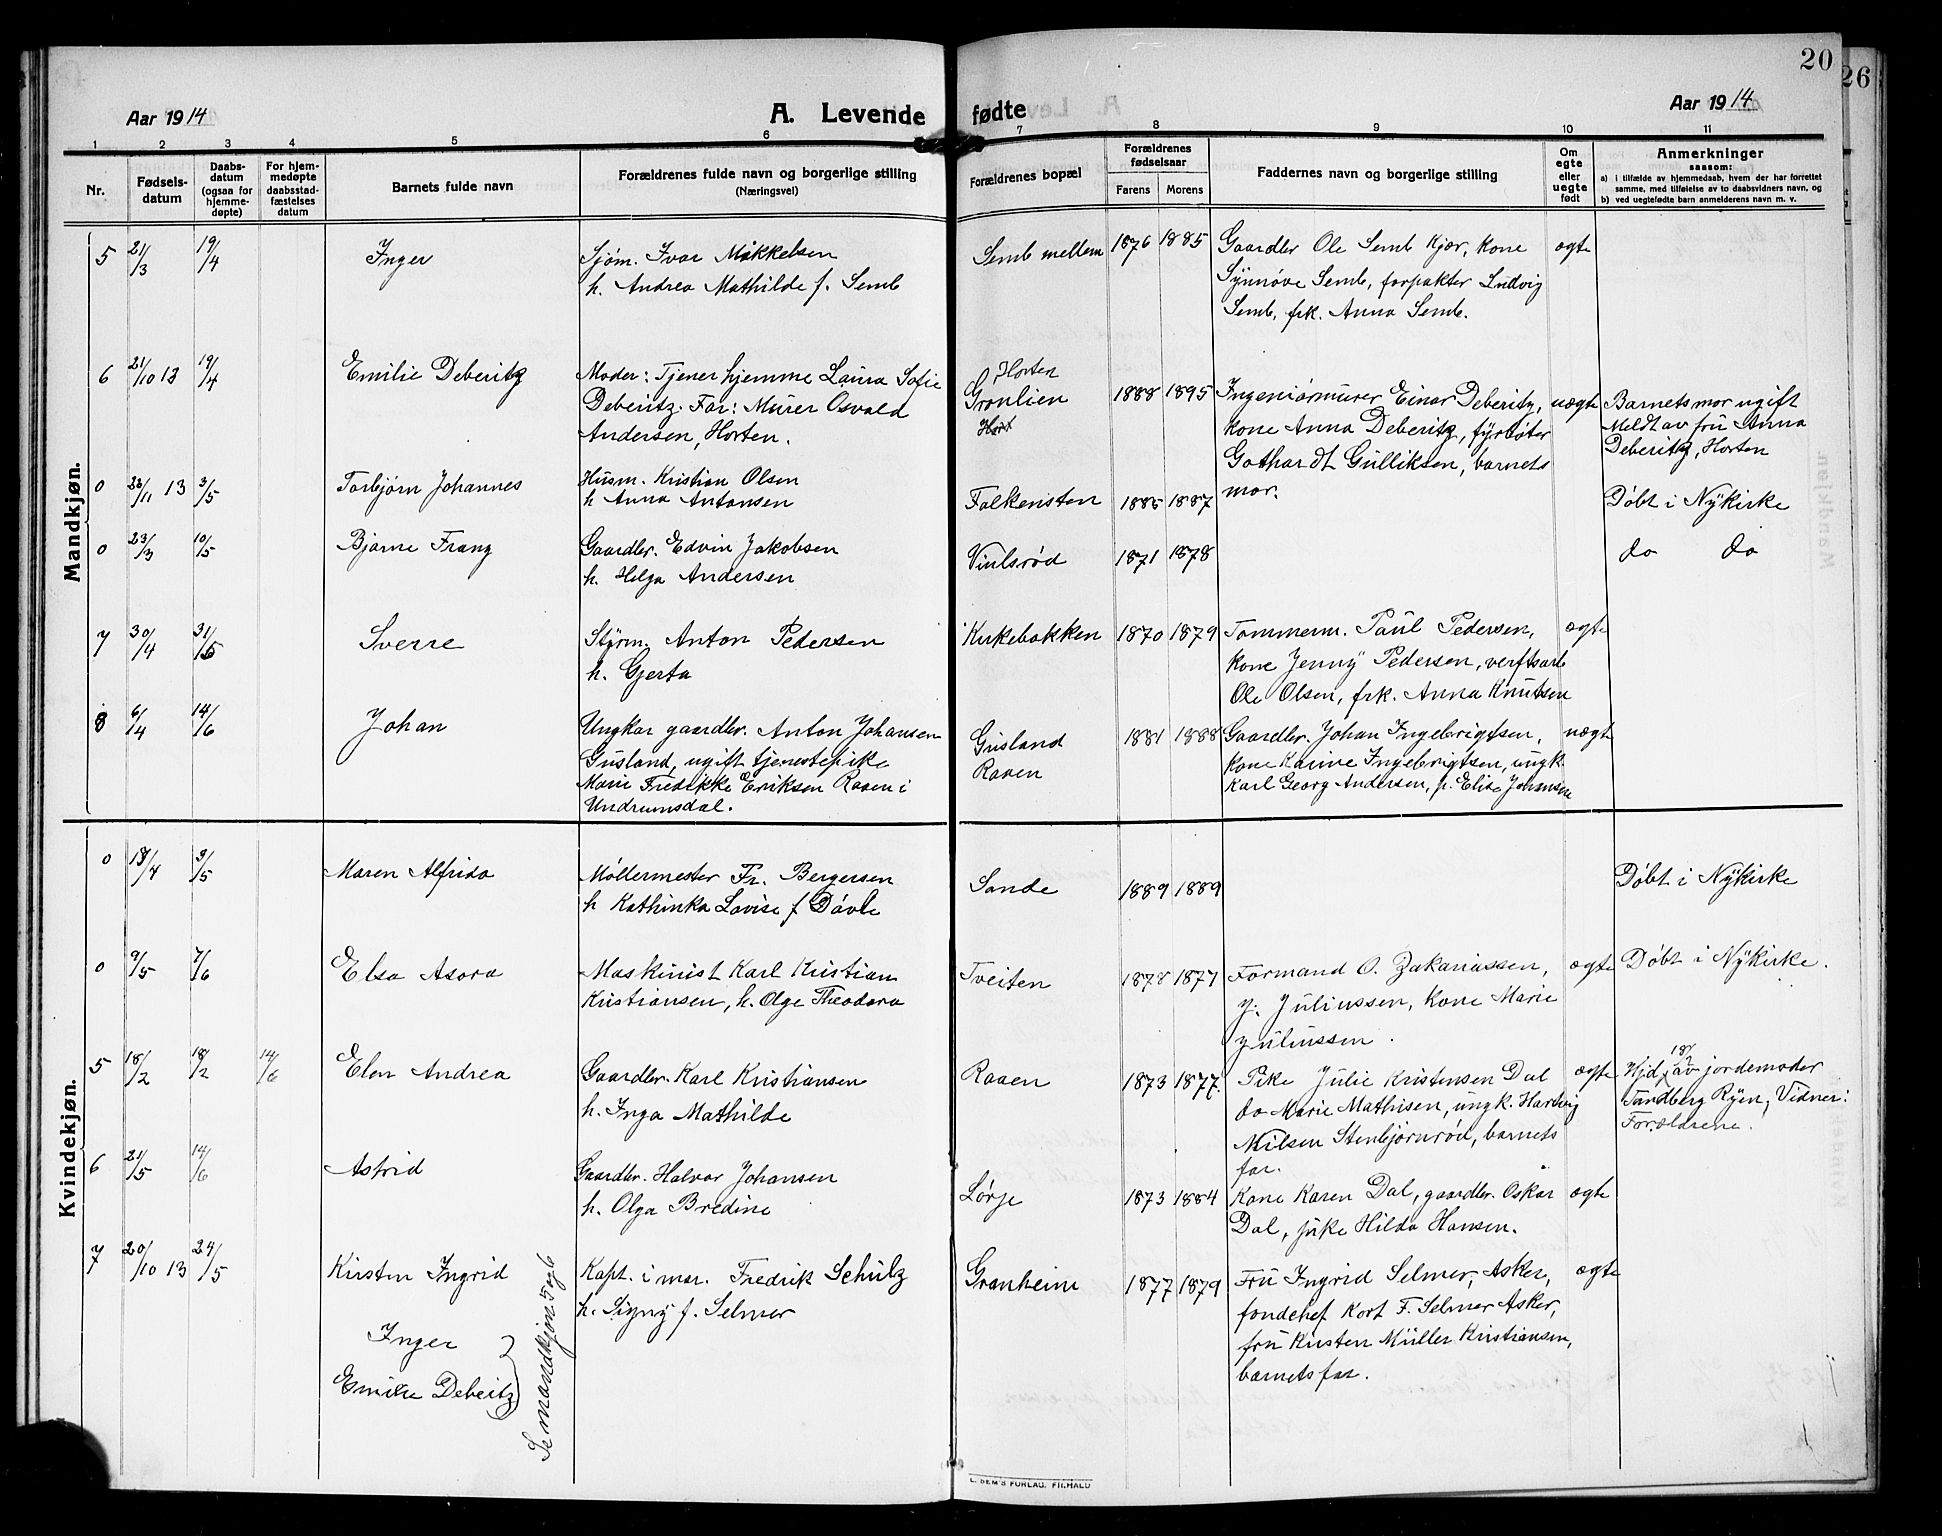 20
26
Aar 1914
A. Levende fødte
Aar 1914
1 2 3 4 5 6 7 8 9 10 11
Nr.
Fødsels-
datum
Daabs-
datum
(ogsaa for
hjemme-
døpte)
For hjem-
medøpte
daabsstad-
fæstelses
datum
Barnets fulde navn
Forældrenes fulde navn og borgerlige stilling
(Næringsvei)
Forældrenes bopæl
Forældrenes
fødselsaar
Farens Morens
Faddernes navn og borgerlige stilling
Om
egte
eller
uegte
født
Anmerkninger
saasom:
a) i tilfælde av hjemmedaab, hvem der har forrettet
samme, med tilføielse av to daabsvidners navn, og
b) ved uegtefødte barn anmelderens navn m. v.
Mandkjøn.
5 21/3 19/4 Inger Sjøm. Ivar Mikkelsen Semb mellem 1876 1885 Gaardbr Ole Semb Kjær, kone ægte
h. Andrea Mathilde f. Semb Synnøve Semb, forpakter Ludvig
Semb, frk. Anna Semb.
6 21/10 13 19/4 Emilie Deberitz Moder: Tjener hjemme Laura Sofie Horten
Grønlien 1888 1895 Ingeniørmurer Einar Deberitz, uægte Barnets mor ugift
Deberitz. Far: Murer Osvald Hort kone Anna Deberitz, fyrbøter Meldt av fru Anna
Andersen, Horten. Gothardt Gulliksen, barnets Deberitz, Horten
mor.
0 23/11 13 3/5 Torbjørn Johannes Husm. Kristian Olsen Falkensten 1885 1887 Døbt i Nykirke
h Anna Antonsen
0 23/3 10/5 Bjarne Franz Gaardbr. Edvin Jakobsen Viulsrød 1871 1878 do do
h. Helga Andersen
7 30/4 31/5 Sverre Styrm. Anton Pedersen Kirkebakken 1870 1879 Tømmerm. Paul Pedersen, ægte
h. Gjerta kone Jenny Pedersen, verftsarb
Ole Olsen, frk. Anna Knutsen
8 6/4 14/6 Johan Ungkar gaardbr. Anton Johansen Gusland 1881 1888 Gaardbr. Johan Ingebrigtsen, uægt
Gusland, ugift tjenestepike Raaen kone Karine Ingebrigtsen, ungk.
Marie Fredikke Eriksen Raaen i Karl Georg Andersen, p. Elise Johansen
Undrumsdal.
Kvindekjøn.
0 18/4 9/5 Maren Alfrida Møllermester Fr. Bergersen Sande 1889 1889 Døbt i Nykirke
h Kathinka Lovise f Dåvle
0 9/5 7/6 Elsa Asora Maskinist Karl Kristian Tveiten 1878 1877 Formand O. Zakariassen, ægte Døbt i Nykirke.
Kristiansen, h. Olga Theodora J. Juliussen, kone Marie
Juliussen.
5 18/2 18/2 14/6 Elen Andrea Gaardbr. Karl Kristiansen Raaen 1873 1877. Pike Julie Kristensen Dal ægte Hjd 18/2 av jordemoder
h. Inga Mathilde do Marie Mathisen, ungk. Hartvig Tandberg Ryen, Vidner:
Nilsen Stenbjørnrød, barnets Forældrene.
far.
6 21/5 14/6 Astrid Gaardbr. Halvor Johansen Lørje 1873 1884 Kone Karen Dal, gaardbr. Oskar ægte
h. Olga Bredine Dal, pike Hilda Hansen.
7 20/10 13 24/5 Kirsten Ingrid Kapt. i mar. Fredrik Schulz Granheim 1877 1879 Fru Ingrid Selmer, Asker, ægte
h. Signy f. Selmer fondchef Kort F. Selmer Asker,
Inger fru Kirsten Müller Kristiansen,
Emilie Deberitz barnets far.
Se mandkjøn 5 og 6
E. SEM'S FORLAG, FR.HALD